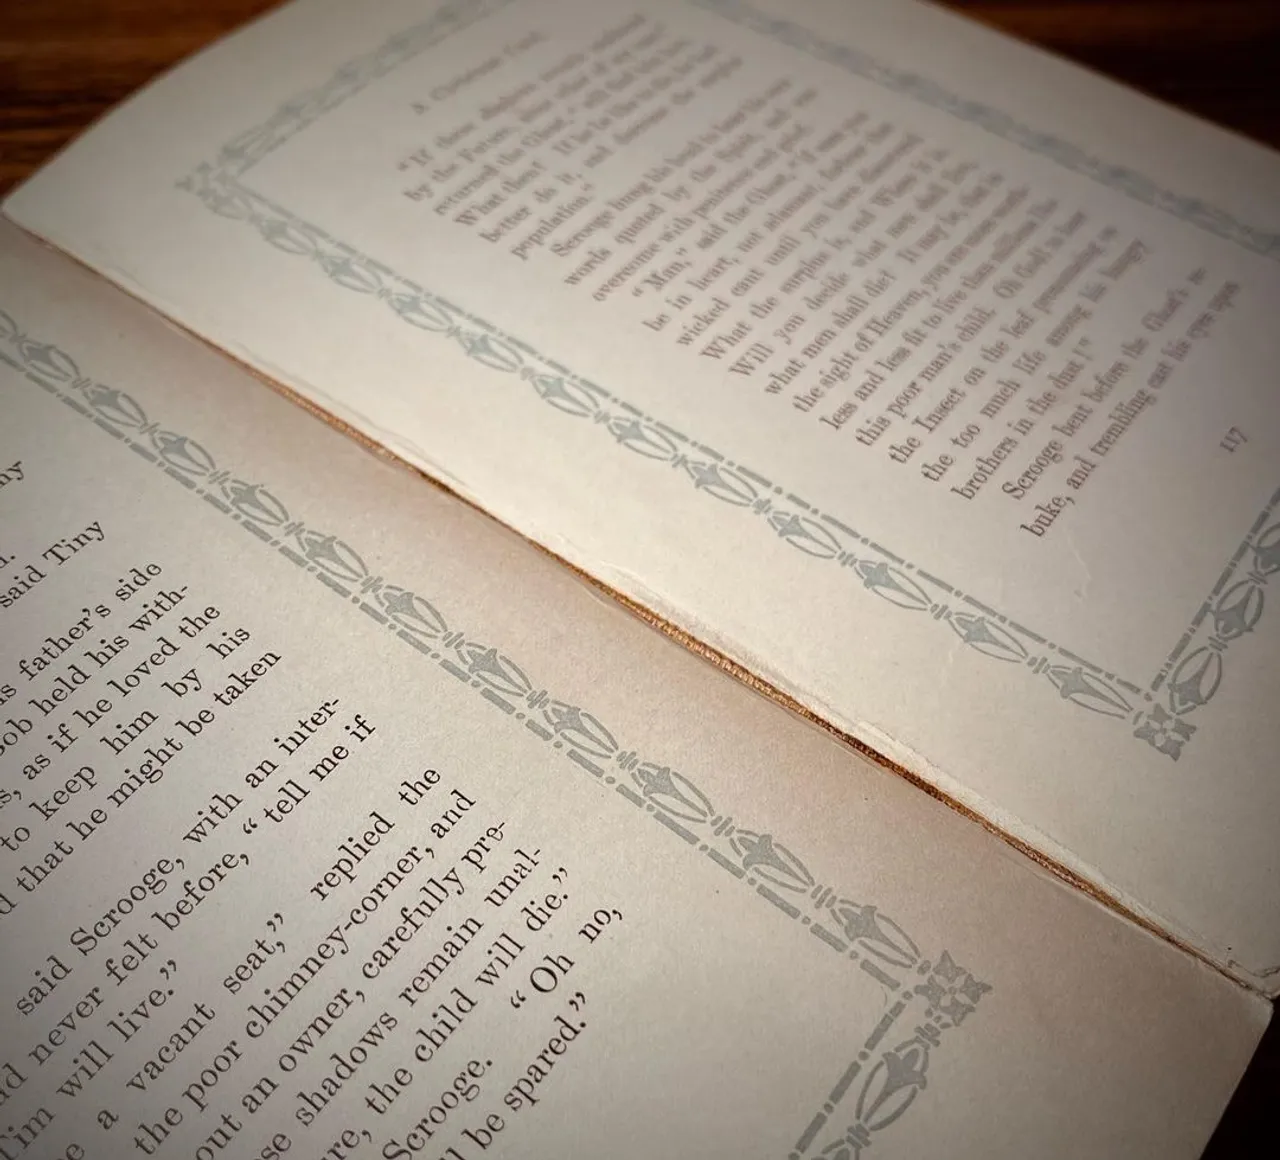 ny
n.
said Tiny
s father's side
Bob held his with-
s, as if he loved the
to keep him by his
d that he might be taken
said Scrooge, with an inter-
ad never felt before, “ tell me if
Tim will live.”
a vacant seat,” replied the
the poor chimney-corner, and
out an owner, carefully pre-
se shadows remain unal-
re, the child will die.”
Scrooge. “ Oh no,
ll be spared.”
A Christmas Carol
“ If these shadows remain unaltered
by the Future, none other of my race,”
returned the Ghost, “ will find him here.
What then? If he be like to die, he had
better do it, and decrease the surplus
population.”
Scrooge hung his head to hear his own
words quoted by the Spirit, and was
overcome with penitence and grief.
“ Man,” said the Ghost, “ if man you
be in heart, not adamant, forbear that
wicked cant until you have discovered
What the surplus is, and Where it is.
Will you decide what men shall live,
what men shall die? It may be, that in
the sight of Heaven, you are more worth-
less and less fit to live than millions like
this poor man's child. Oh God! to hear
the Insect on the leaf pronouncing on
the too much life among his hungry
brothers in the dust ! ”
Scrooge bent before the Ghost's re-
buke, and trembling cast his eyes upon
117